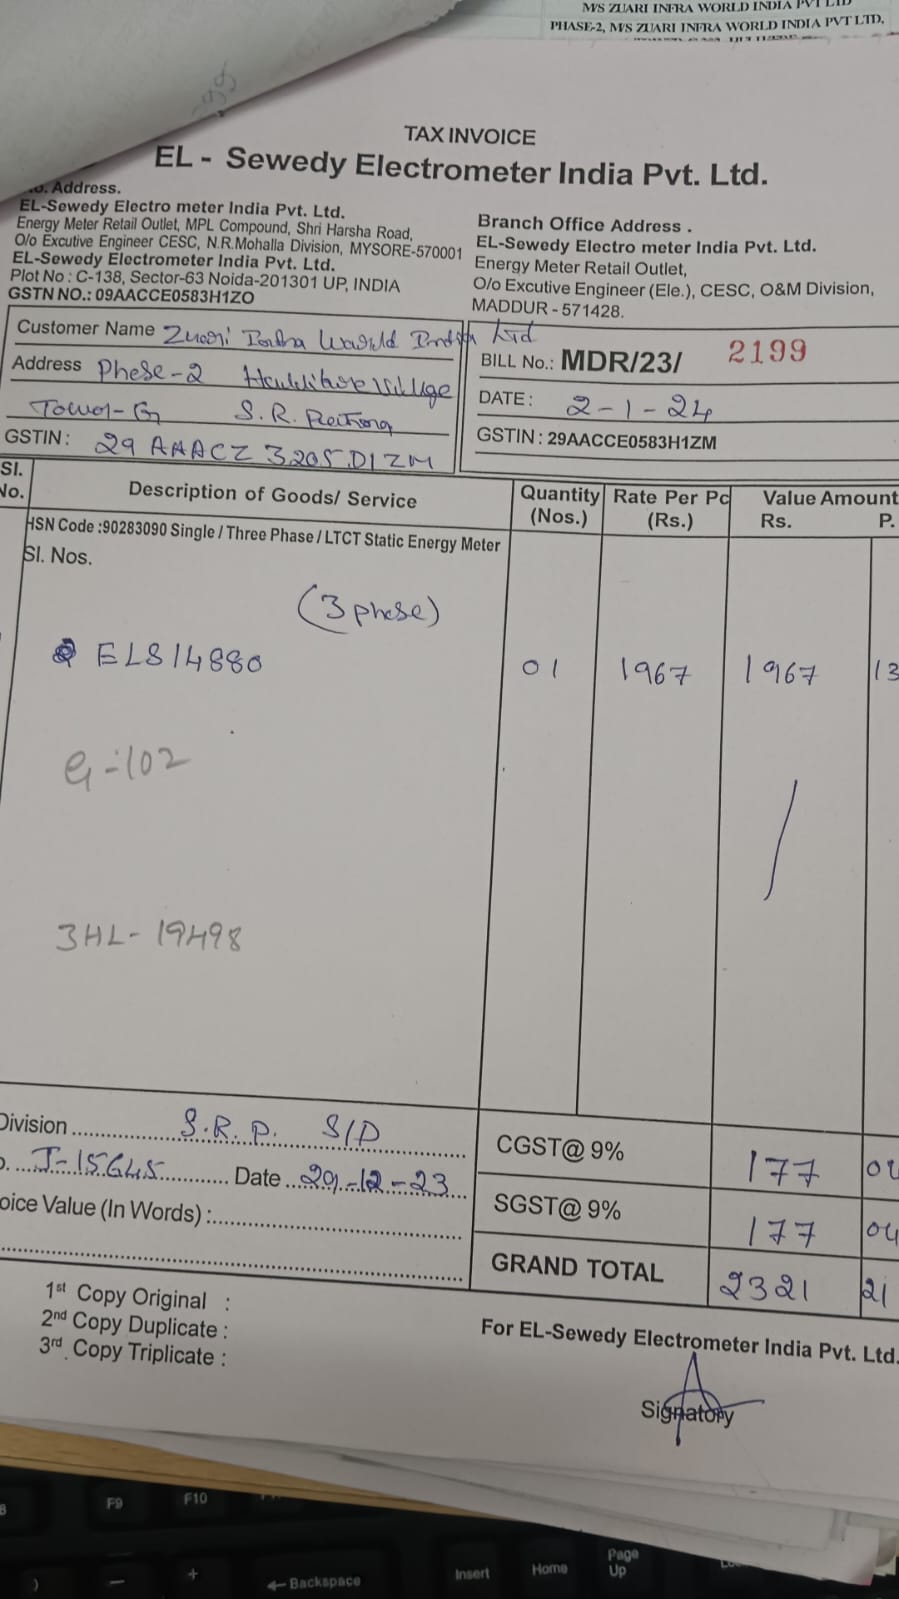 M/S ZUARI INFRA WORLD INDIA PVT LTD
PHASE-2, M/S ZUARI INFRA WORLD INDIA PVT LTD,
TAX INVOICE
EL - Sewedy Electrometer India Pvt. Ltd.
Address.
EL-Sewedy Electro meter India Pvt. Ltd.
Energy Meter Retail Outlet, MPL Compound, Shri Harsha Road,
O/o Excutive Engineer CESC, N.R.Mohalla Division, MYSORE-570001
EL-Sewedy Electrometer India Pvt. Ltd.
Plot No : C-138, Sector-63 Noida-201301 UP, INDIA
GSTN NO.: 09AACCE0583H1ZO
Branch Office Address .
EL-Sewedy Electro meter India Pvt. Ltd.
Energy Meter Retail Outlet,
O/o Excutive Engineer (Ele.), CESC, O&M Division,
MADDUR - 571428.
Customer Name Zuari Infra World India Ltd
Address Phase-2 Village
Tower-G S.R.
GSTIN : 29 AAACZ 3205 D1ZM
BILL No.: MDR/23/ 2199
DATE : 2-1-24
GSTIN : 29AACCE0583H1ZM
Sl. No. Description of Goods/ Service Quantity (Nos.) Rate Per Pc (Rs.) Value Amount Rs. P.
HSN Code :90283090 Single / Three Phase / LTCT Static Energy Meter
Sl. Nos.
(3 phase)
ELS14880 01 1967 1967 13
G-102
3HL- 19498
Division ............ S.R.P. S/D
J-15645 ............ Date ...29-12-23
oice Value (In Words) :............
CGST@ 9% 177 04
SGST@ 9% 177 04
GRAND TOTAL 2321 21
1st Copy Original :
2nd Copy Duplicate :
3rd Copy Triplicate :
For EL-Sewedy Electrometer India Pvt. Ltd.
Signatory
F9
F10
Backspace
Insert
Home
Page
Up